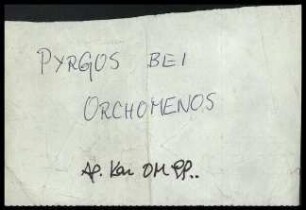 PYRGOS BEI
ORCHOMENOS
Ap. Kar OM PP..